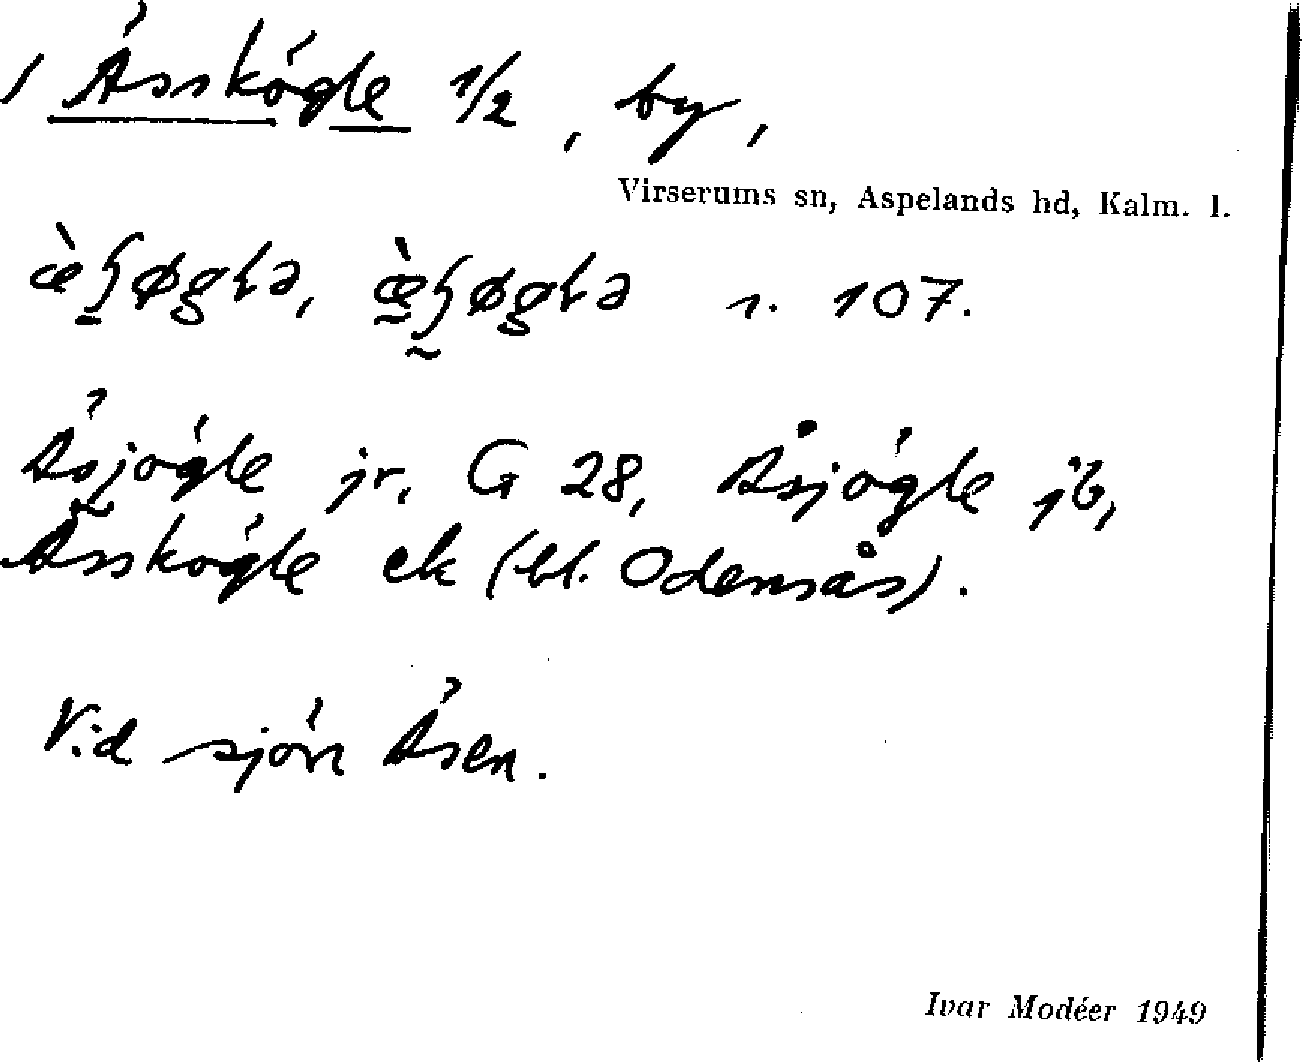 1 Ässkögle 1/2, by,
Virserums sn, Aspelands hd, Kalm. l.
s. 107.
Äsjögle jr, G 28, Åsjögle jb,
Ässkögle ek (bl. Odensås).
Vid sjön Äsen.
Ivar Modéer 1949